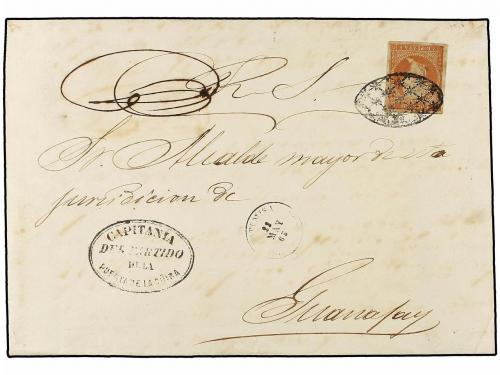 R. S.
Sr. Alcalde mayor de esta
jurisdicion de
Guanajay
CAPITANIA
DEL PARTIDO
DE LA
PUERTA DE LA GÜIRA
22
MAY